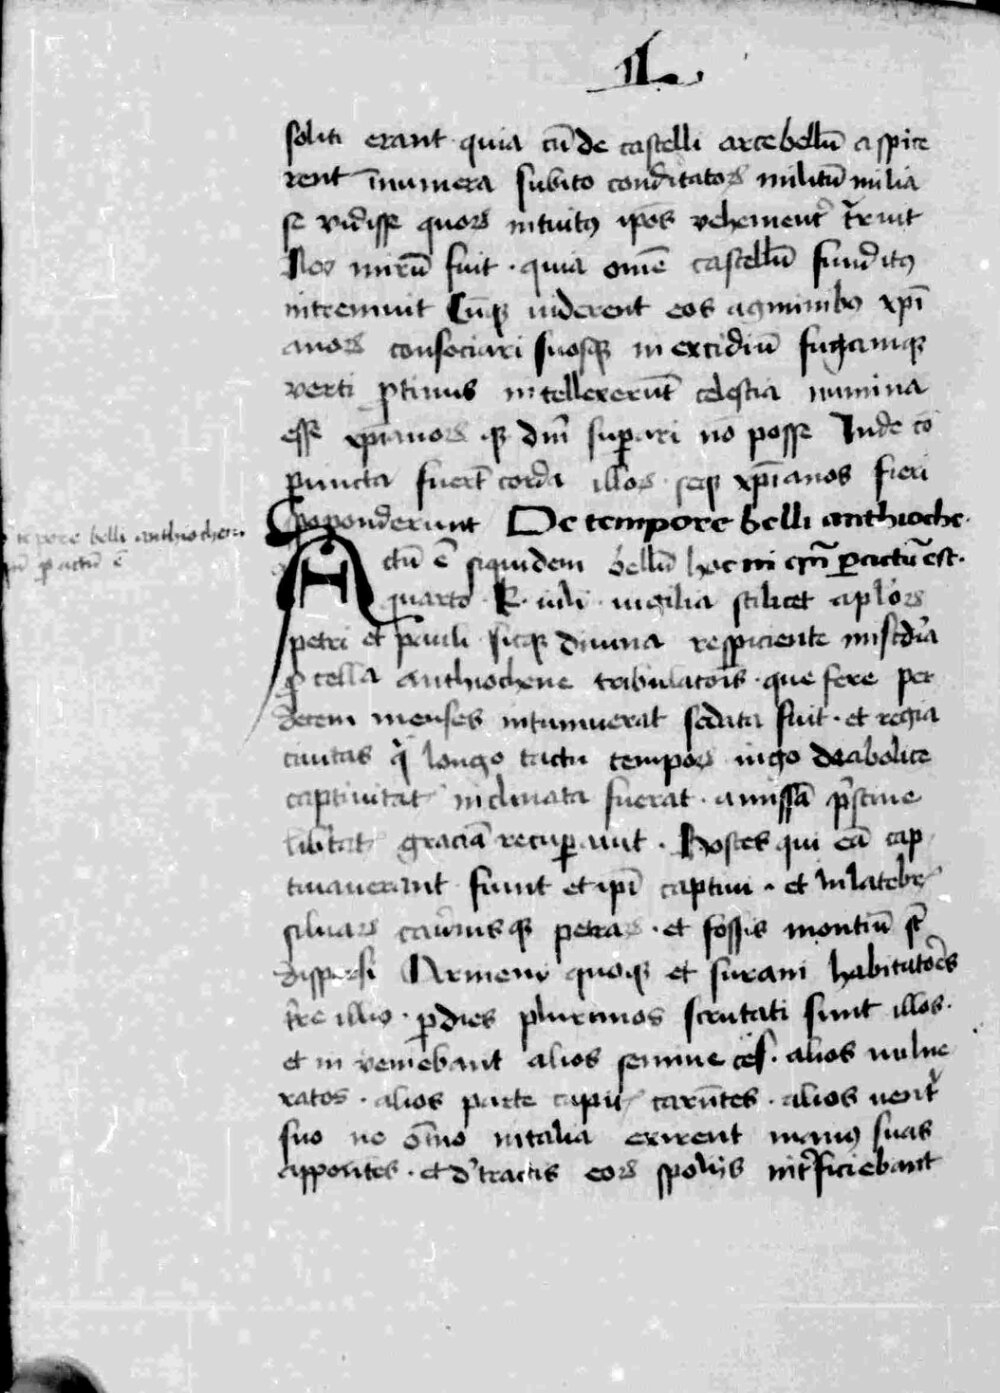 IL
soliti erant quia cū de castelli arce bellū aspice
rent īnumera subito conditatoꝝ militū milia
se vidisse quoꝝ intuitꝰ ipōs vehement᷑ t̄ruit
Nec mirū fuit · quia omē castellū funditꝰ
intremuit Cūqꝫ uiderent eos agminibꝰ xp̄i
anoꝝ consociari suosqꝫ in excidiū fugamqꝫ
verti ꝓtinus intellexerūt celestia numina
esse xp̄ianoꝝ qꝫ dm̄ suꝑari nō posse Inde cō
puncta fuerūt corda illoꝝ · seqꝫ xp̄ianos fieri
spoponderunt De tempore belli anthioche·
tēpore belli anthiochen·
ꝑactū ē
Actū ē siquidem bellū hoc in ꝑactū est·
quarto · K · iuli · uigilia scilicet apl'oꝝ
petri et pauli sicqꝫ diuina respiciente miscd'ia
ꝓcella anthiochene tribulatōis · que fere per
decem menses intumuerat sedata fuit · et regia
ciuitas q̄ longo tractu temporꝭ iugo deabolice
captiuitatꝭ inclinata fuerat · amissā p̄stine
lib̄tatꝭ graciā recuꝑauit · Hostes qui eā cap
tiuauerant fiunt et ip̄i captiui · et in latebrꝭ
siluaꝝ cauernisqꝫ petraꝝ · et fossis montiū st̄
dispersi Armeni quoqꝫ et surani habitatōes
t̄re illiꝰ · ꝑ dies plurimos scrutati sunt illos·
et in veniebant alios semineces · alios uulne
ratos · alios parte capitꝭ carētes · alios uentr̄
suo ne ōīno intalia exirent manꝰ suas
apponētes · et d'tractis eoꝝ spoliis int̄ficiebant